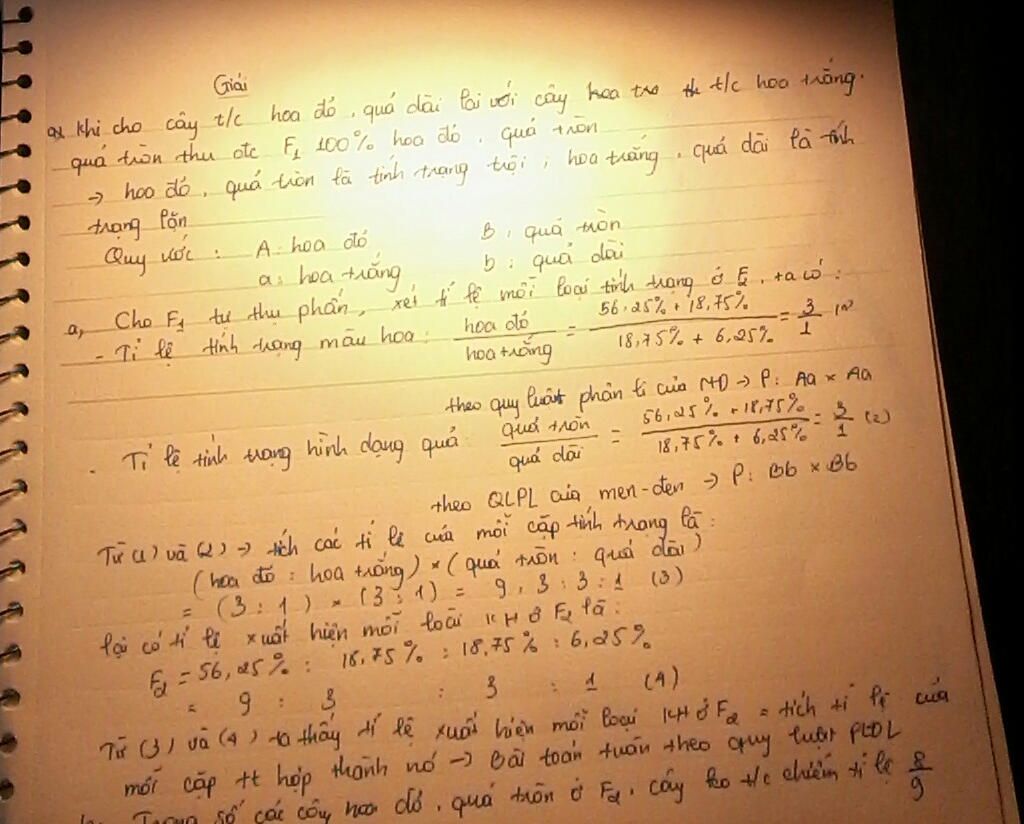 Giải
a, khi cho cây t/c hoa đỏ, quả dài lai với cây t/c hoa trắng.
quả tròn thu đtc F₁ 100% hoa đỏ, quả tròn
→ hoa đỏ, quả tròn là tính trạng trội; hoa trắng, quả dài là tính
trạng lặn
Quy ước: A: hoa đỏ B: quả tròn
a: hoa trắng b: quả dài
a, Cho F₁ tự thụ phấn, xét tỉ lệ mỗi loại tính trạng ở F₂, ta có:
- Tỉ lệ tính trạng màu hoa: hoa đỏ / hoa trắng = 56,25% + 18,75% / 18,75% + 6,25% = 3/1 (1)
theo quy luật phân li của MĐ → P: Aa × Aa
- Tỉ lệ tính trạng hình dạng quả: quả tròn / quả dài = 56,25% + 18,75% / 18,75% + 6,25% = 3/1 (2)
theo QLPL của men-đen → P: Bb × Bb
Từ (1) và (2) → tích các tỉ lệ của mỗi cặp tính trạng là:
(hoa đỏ : hoa trắng) × (quả tròn : quả dài)
= (3 : 1) × (3 : 1) = 9 : 3 : 3 : 1 (3)
lại có tỉ lệ xuất hiện mỗi loại KH ở F₂ là:
F₂ = 56,25% : 18,75% : 18,75% : 6,25%
= 9 : 3 : 3 : 1 (4)
Từ (3) và (4) ta thấy tỉ lệ xuất hiện mỗi loại KH ở F₂ = tích tỉ lệ của
mỗi cặp tt hợp thành nó → Bài toán tuân theo quy luật PLĐL
b, Trong số các cây hoa đỏ, quả tròn ở F₂, cây ko t/c chiếm tỉ lệ 8/9